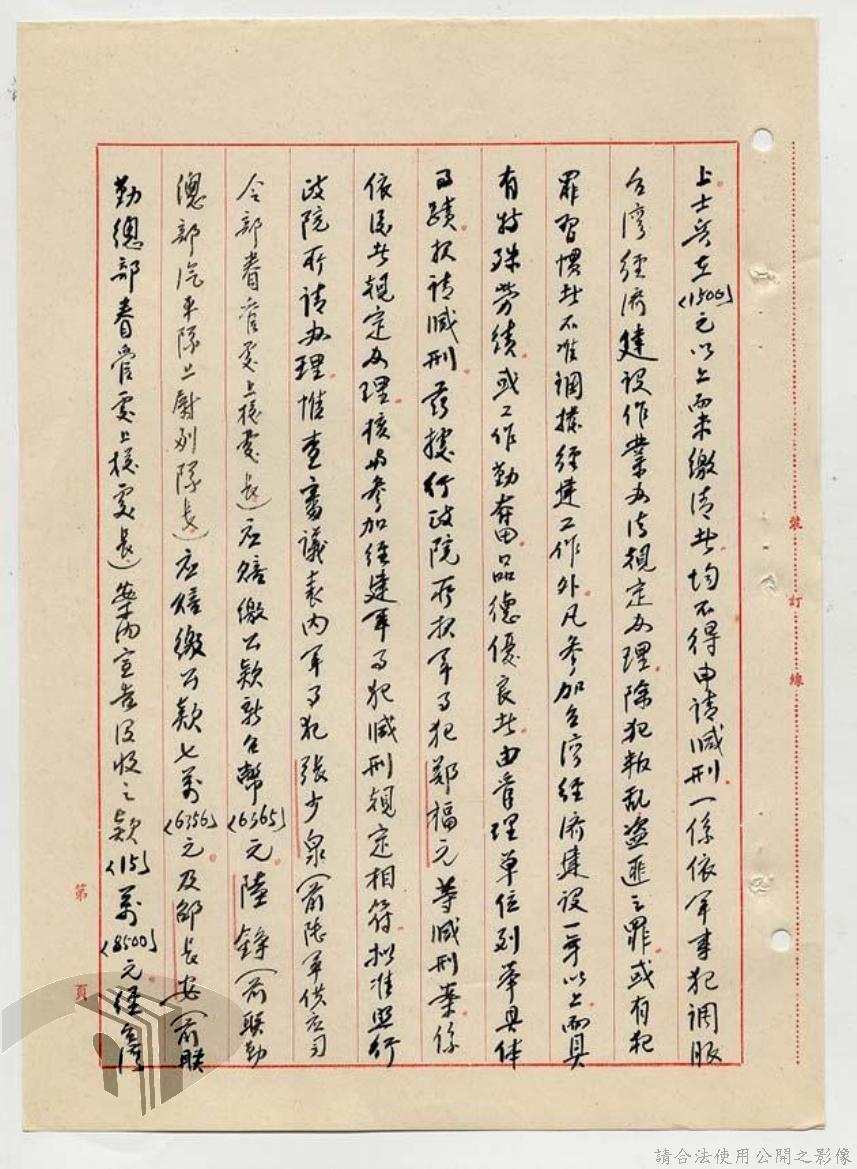 上士兵在(1500)元以上而未繳清者均不得申請減刑一係依軍事犯調服
台湾經濟建設作業办法規定办理除犯叛乱盜匪之罪或有犯
罪習慣者不准調撥經建工作外凡參加台湾經济建設一年以上而具
有特殊勞績或工作勤奮品德優良者由管理單位列舉具体
事蹟报請減刑茲據行政院所报軍事犯鄭福元等減刑案係
依後者規定办理核与參加經建軍事犯減刑規定相符拟准照行
政院所請办理惟查審議表內軍事犯張少泉(前陸軍供应司
令部眷管處上校處長)应賠繳公款新台幣(6365)元陸錚(前联勤
總部汽車隊上尉列隊長)应賠繳公款七萬(6356)元及邵長安(前联
勤總部眷管處上校處長)案內宣告沒收之款(15)萬(8500)元經台湾
裝訂線
第 頁
請合法使用公開之影像